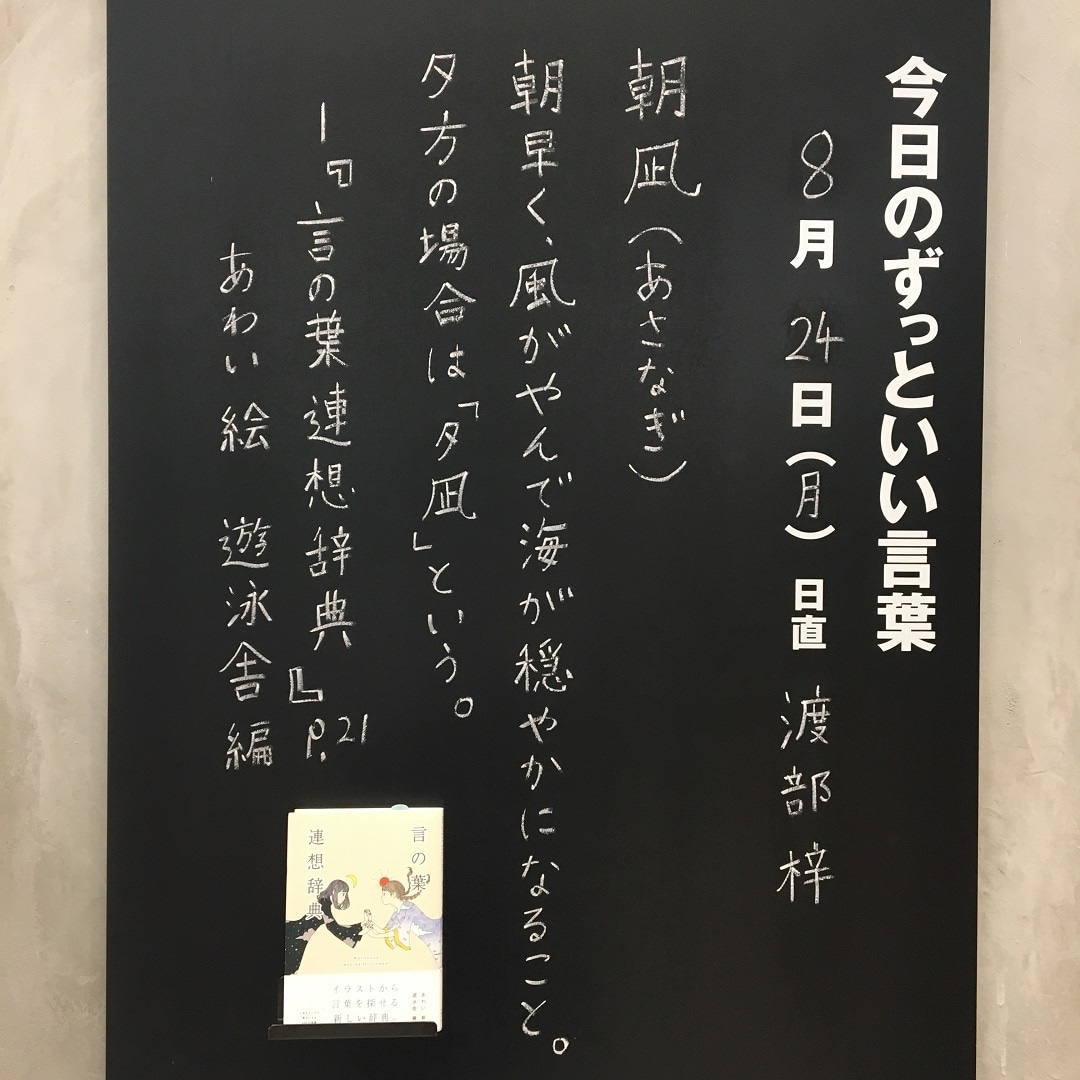 今日のずっといい言葉
8月24日(月) 日直 渡部 梓
朝凪(あさなぎ)
朝早く、風がやんで海が穏やかになること。
夕方の場合は「夕凪」という。
―『言の葉連想辞典』P.21
あわい絵 遊泳舎編
言の葉
連想辞典
イラストから
言葉を探せる
新しい辞典。